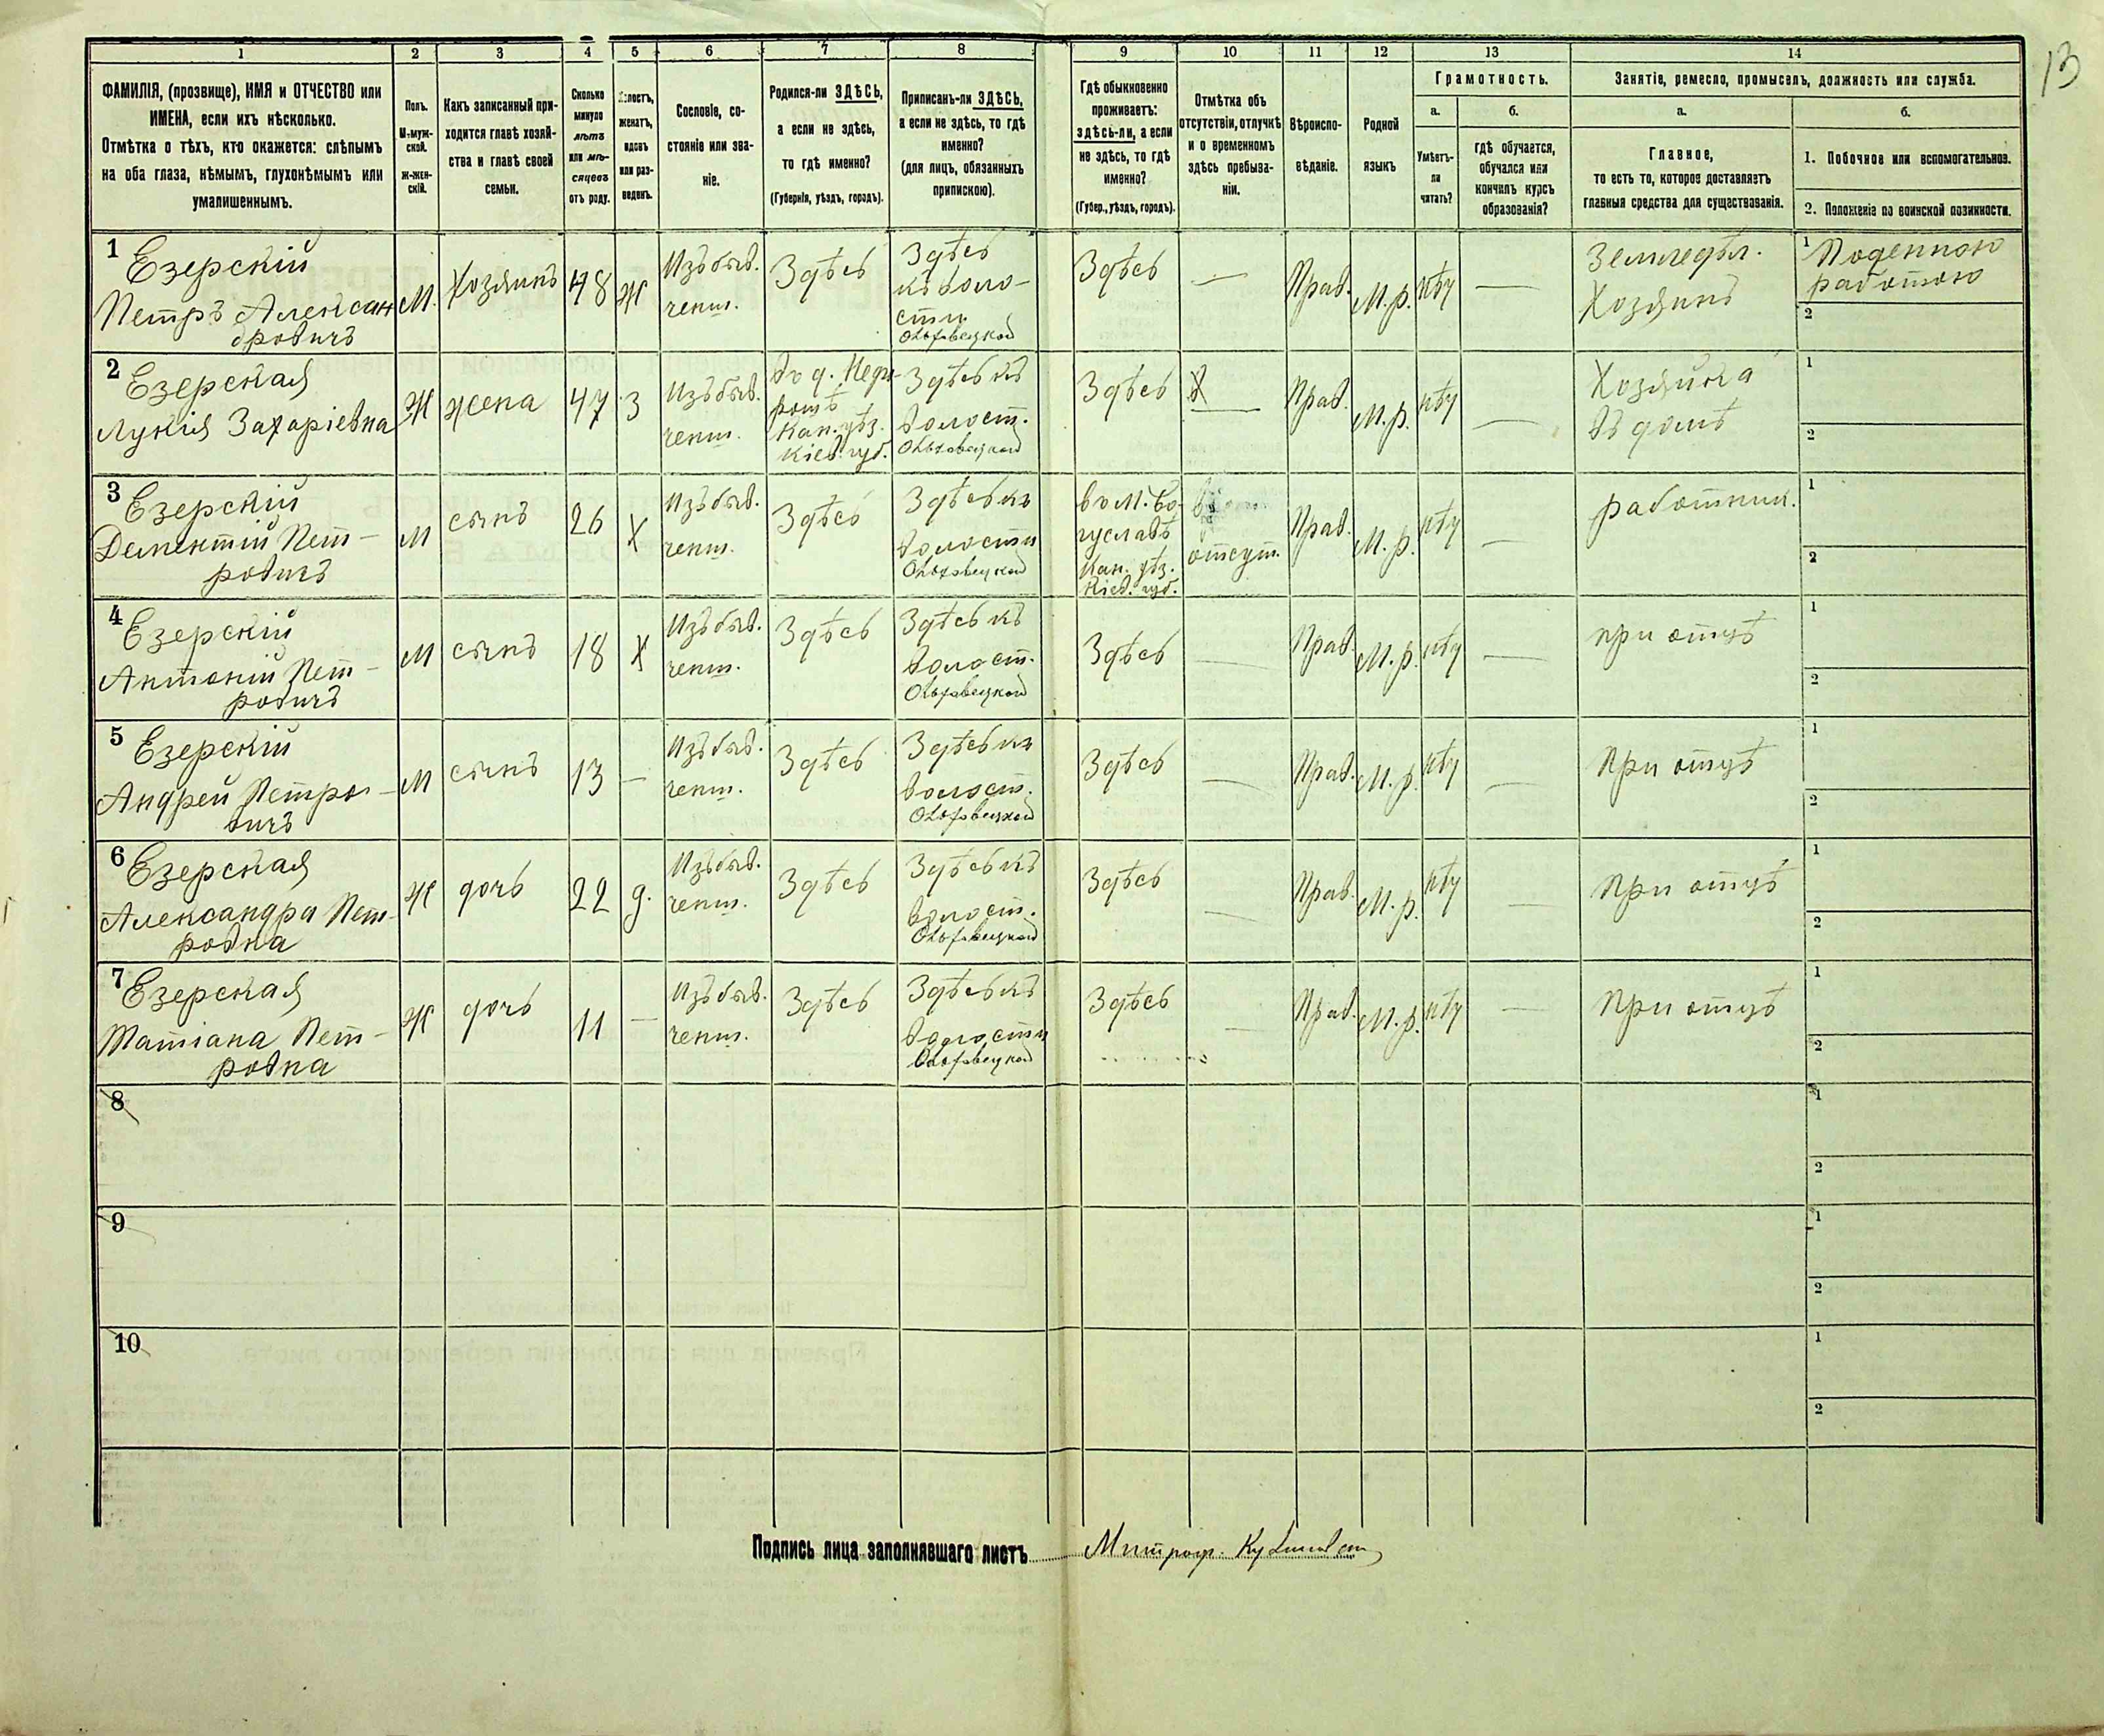 13
1 2 3 4 5 6 7 8 9 10 11 12 13 14
ФАМИЛІЯ, (прозвище), ИМЯ и ОТЧЕСТВО или
ИМЕНА, если ихъ нѣсколько.
Отмѣтка о тѣхъ, кто окажется: слѣпымъ
на оба глаза, нѣмымъ, глухонѣмымъ или
умалишеннымъ.
Полъ.
М-муж-
ской.
Ж-жен-
скій.
Какъ записанный при-
ходится главѣ хозяй-
ства и главѣ своей
семьи.
Сколько
минуло
лѣтъ
или мѣ-
сяцевъ
отъ роду.
Холостъ,
женатъ,
вдовъ
или раз-
веденъ.
Сословіе, со-
стояніе или зва-
ніе.
Родился-ли ЗДѢСЬ,
а если не здѣсь,
то гдѣ именно?
(Губернія, уѣздъ, городъ).
Приписанъ-ли ЗДѢСЬ,
а если не здѣсь, то гдѣ
именно?
(для лицъ, обязанныхъ
припискою).
Гдѣ обыкновенно
проживаетъ:
здѣсь-ли, а если
не здѣсь, то гдѣ
именно?
(Губер., уѣздъ, городъ).
Отмѣтка объ
отсутствіи, отлучкѣ
и о временномъ
здѣсь пребыва-
ніи.
Вѣроиспо-
вѣданіе.
Родной
языкъ
Грамотность.
а.
Умѣетъ-
ли
читать?
б.
гдѣ обучается,
обучался или
кончилъ курсъ
образованія?
Занятіе, ремесло, промыселъ, должность или служба.
а.
Главное,
то есть то, которое доставляетъ
главныя средства для существованія.
б.
1. Побочное или вспомогательное.
2. Положеніе по воинской повинности.
1
Езерскій
Петръ Алексан
дровичъ
М.
Хозяинъ
48
Ж
Изъ быв.
ченш.
Здѣсь
Здѣсь
къ воло-
сти
Ольховецкой
Здѣсь
—
Прав.
М.р.
нѣту
—
Земледѣл.
Хозяинъ
1 Поденною
работою
2
2
Езерская
Лукія Захаріевна
Ж
жена
47
З
Изъ быв.
ченш.
Кан. уѣз.
Кіев. губ.
Здѣсь къ
волост.
Ольховецкой
Здѣсь
—
Прав.
М.р.
нѣту
—
Хозяйка
въ домѣ
1
2
3
Езерскій
Дементій Пет-
ровичъ
М
сынъ
26
Х
Изъ быв.
ченш.
Здѣсь
Здѣсь къ
волости
Ольховецкой
въ м. Бо-
гуславѣ
Кан. уѣз.
Кіев. губ.
отсут.
Прав.
М.р.
нѣту
—
работник.
1
2
4
Езерскій
Антоній Пет-
ровичъ
М
сынъ
18
Х
Изъ быв.
ченш.
Здѣсь
Здѣсь къ
волост.
Ольховецкой
Здѣсь
—
Прав.
М.р.
нѣту
—
при отцѣ
1
2
5
Езерскій
Андрей Петро-
вичъ
М
сынъ
13
—
Изъ быв.
ченш.
Здѣсь
Здѣсь къ
волост.
Ольховецкой
Здѣсь
—
Прав.
М.р.
нѣту
—
При отцѣ
1
2
6
Езерская
Александра Пет-
ровна
Ж
дочь
22
д.
Изъ быв.
ченш.
Здѣсь
Здѣсь къ
волост.
Ольховецкой
Здѣсь
—
Прав.
М.р.
нѣту
—
При отцѣ
1
2
7
Езерская
Татіана Пет-
ровна
Ж
дочь
11
—
Изъ быв.
ченш.
Здѣсь
Здѣсь къ
волости
Ольховецкой
Здѣсь
—
Прав.
М.р.
нѣту
—
При отцѣ
1
2
8
1
2
9
1
2
10
1
2
Подпись лица заполнявшаго листъ Митроф.